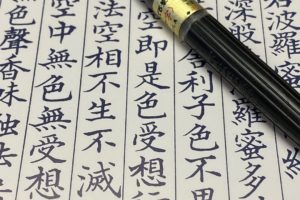 若波羅蜜多
深般若波羅蜜多
舍利子色不異
空即是色受想行
法空相不生不滅
空中無色無受想
色聲香味觸法